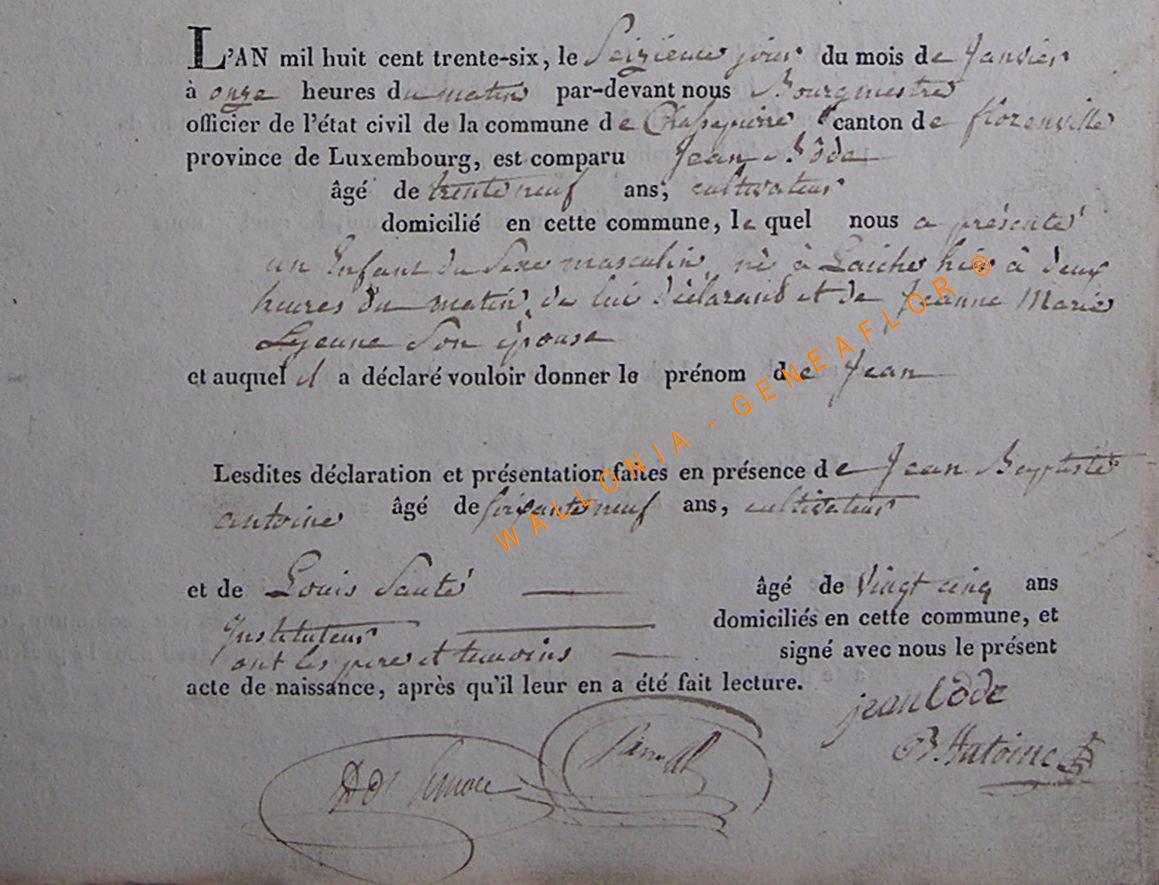 L'AN mil huit cent trente-six, le Seizieme jour du mois de Janvier
à onze heures du matin par-devant nous Bourgmestre
officier de l'état civil de la commune de Chassepierre canton de florenville
province de Luxembourg, est comparu Jean
âgé de trente neuf ans, cultivateur
domicilié en cette commune, le quel nous a présenté
un Enfant du Sexe masculin, né à Laiche hier à deux
heures du matin, de lui déclarant et de Jeanne Marie
Lejeune Son épouse
et auquel il a déclaré vouloir donner le prénom de Jean
Lesdites déclaration et présentation faites en présence de Jean Baptiste
antoine âgé de soixante neuf ans, cultivateur
et de Louis Santé âgé de Vingt cinq ans
Instituteur domiciliés en cette commune, et
ont les pere et temoins signé avec nous le présent
acte de naissance, après qu'il leur en a été fait lecture.
jean
B. Antoine
WALLONIA - GENEAFLOR ®